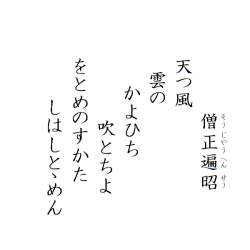 僧正遍昭
そうじやうへんせう
天つ風
雲の
かよひち
吹とちよ
をとめのすかた
しはしとゝめん